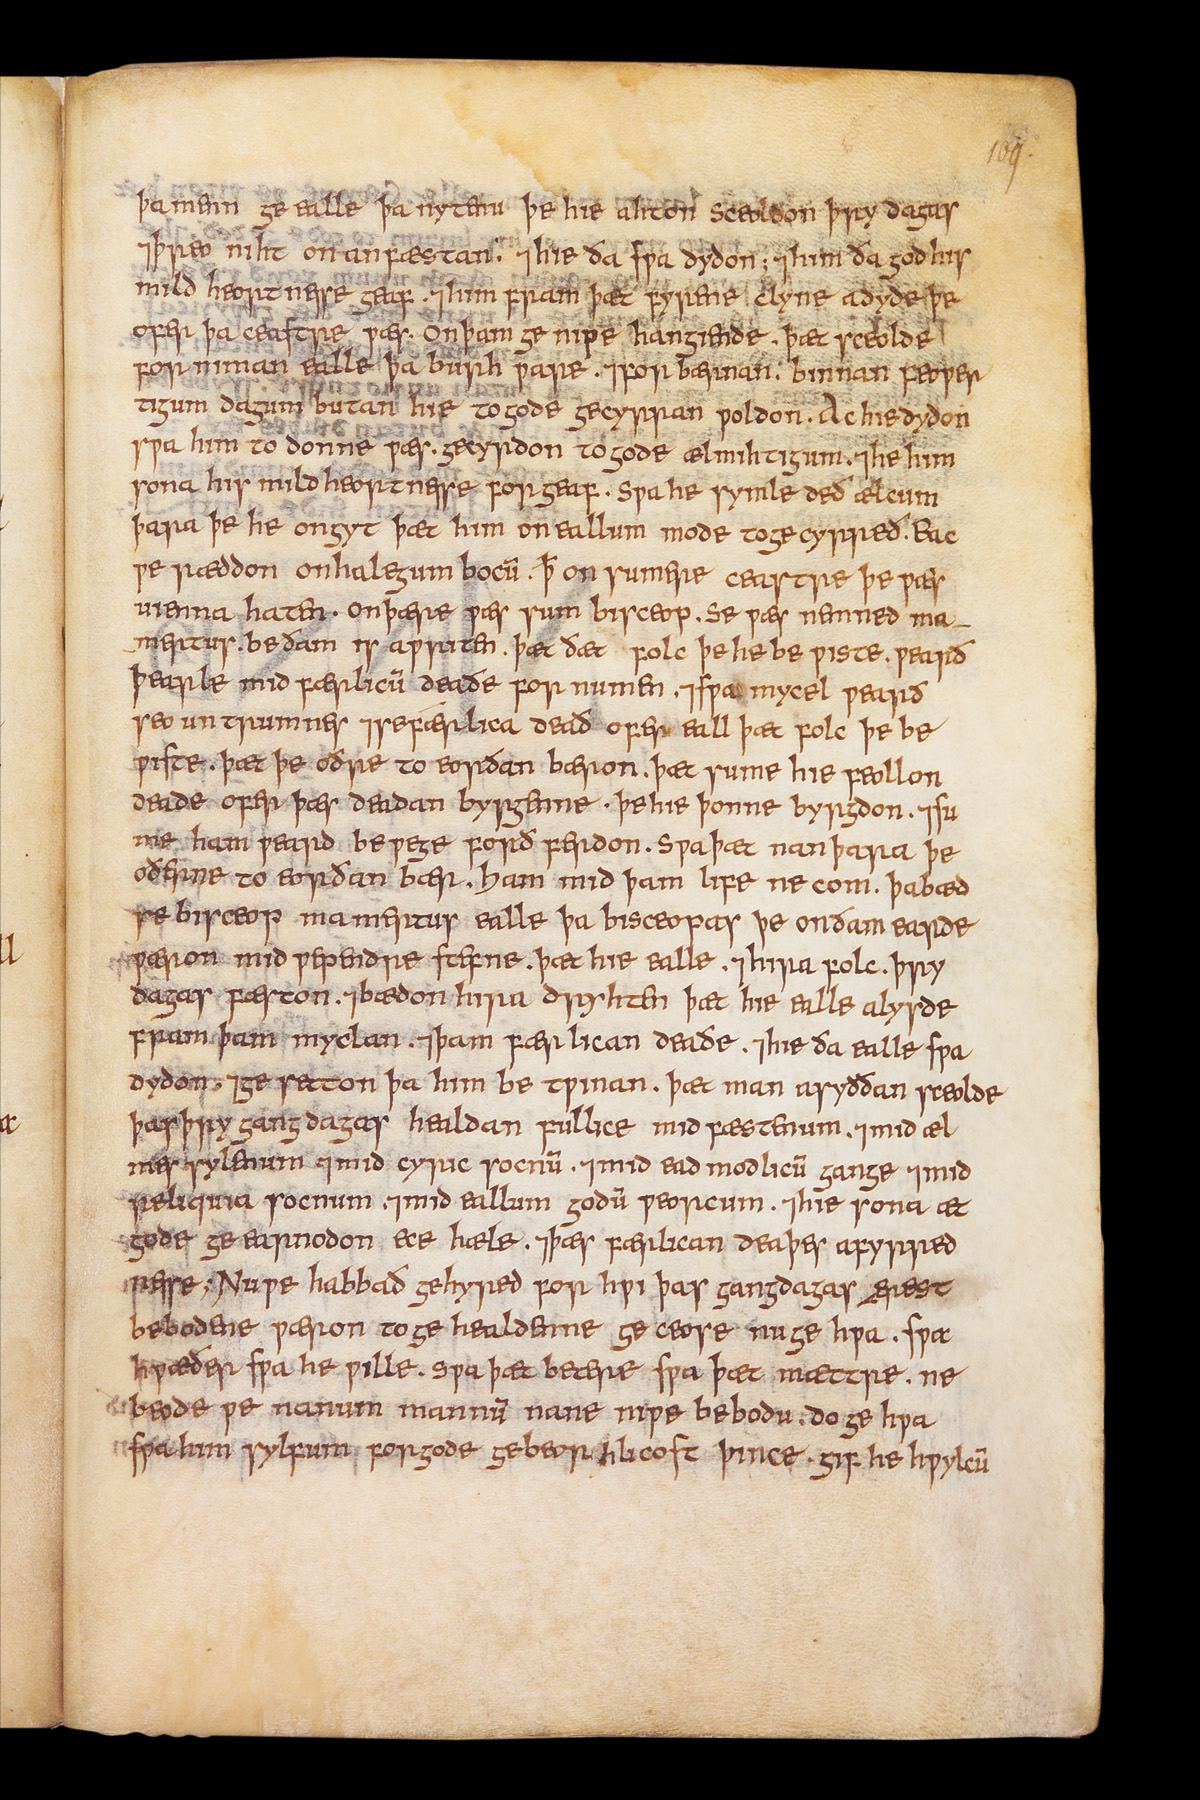 109
þa menn ge ealle þa nytenu þe hie ahton sceoldon þry dagas
⁊ þreo niht on an fæstan. ⁊ hie ða swa dydon; ⁊ him ða god his
mildheortnesse geaf. ⁊ him fram þæt fyrene clyne adyde þe
ofer þa ceastre wæs. On þam genipe hangiende. þæt sceolde
forniman ealle þa burhware. ⁊ forbærnan. binnan feower
tigum dagum butan hie to gode gecyrran woldon. Ac hie dydon
swa him to donne wæs. gecyrdon to gode ælmihtigum. ⁊ he him
sona his mildheortnesse forgeaf. Swa he symle deð ælcum
þara þe he ongyt þæt him on eallum mode to gecyrreð. Eac
we ræddon on halegum bocū. þ̄ on sumere ceastre þe wæs
uienna haten. on þære wæs sum bisceop. Se wæs nemned ma-
mertus. be ðam is awriten. þæt ðæt folc þe he bewiste. wearð
þearle mid færlicū deaðe fornumen. ⁊ swa mycel wearð
seo untrumnes ⁊ se færlica deað ofer eall þæt folc þe he be
wiste. þæt þe oðre to eorðan bæron. þæt sume hie feollon
deade ofer þæs deadan byrgenne. þe hie þonne byrgdon. ⁊ su
me hamweard be wege forð ferdon. Swa þæt nan þara þe
oðerne to eorðan bær. Ham mid þam life ne com. þa bæd
se bisceop mamertus ealle þa bisceopas þe on ðam earde
wæron mid wependre stefne. þæt hie ealle. ⁊ hira folc. þry
dagas fæston. ⁊ bædon hira dryhten þæt hie ealle alysde
fram þam myclan. ⁊ þam færlican deaðe. ⁊ hie ða ealle swa
dydon. ⁊ gesetton þa him betwinan. þæt man a syððan sceolde
þas þry gangdagas healdan fullice mid fæstenum. ⁊ mid æl
mes sylenum ⁊ mid cyric socnū. ⁊ mid eadmodlicū gange ⁊ mid
reliquia socnum. ⁊ mid eallum godū weorcum. ⁊ hie sona æt
gode geearnodon ece hæle. ⁊ þæs færlican deaþes afyrred
nesse; Nu we habbað gehyred for hwi þas gangdagas ærest
bebodene wæron to gehealdenne geceose nu gehwa. swa
hwæðer swa he wille. Swa þæt betere swa þæt mættre. ne
beode we nanum mannū nane niwe bebodu. do gehwa
swa him sylfum for gode gebeorhlicost þince. gif he hwylcū